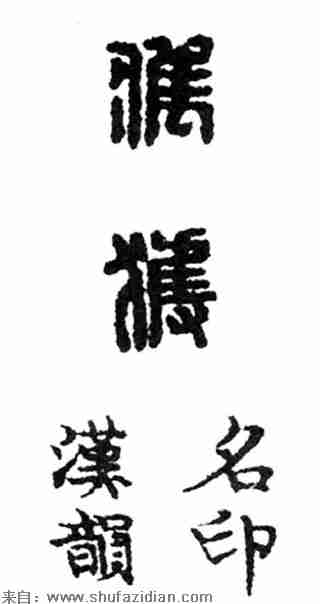 名印
漢韻
来自：www.shufazidian.com